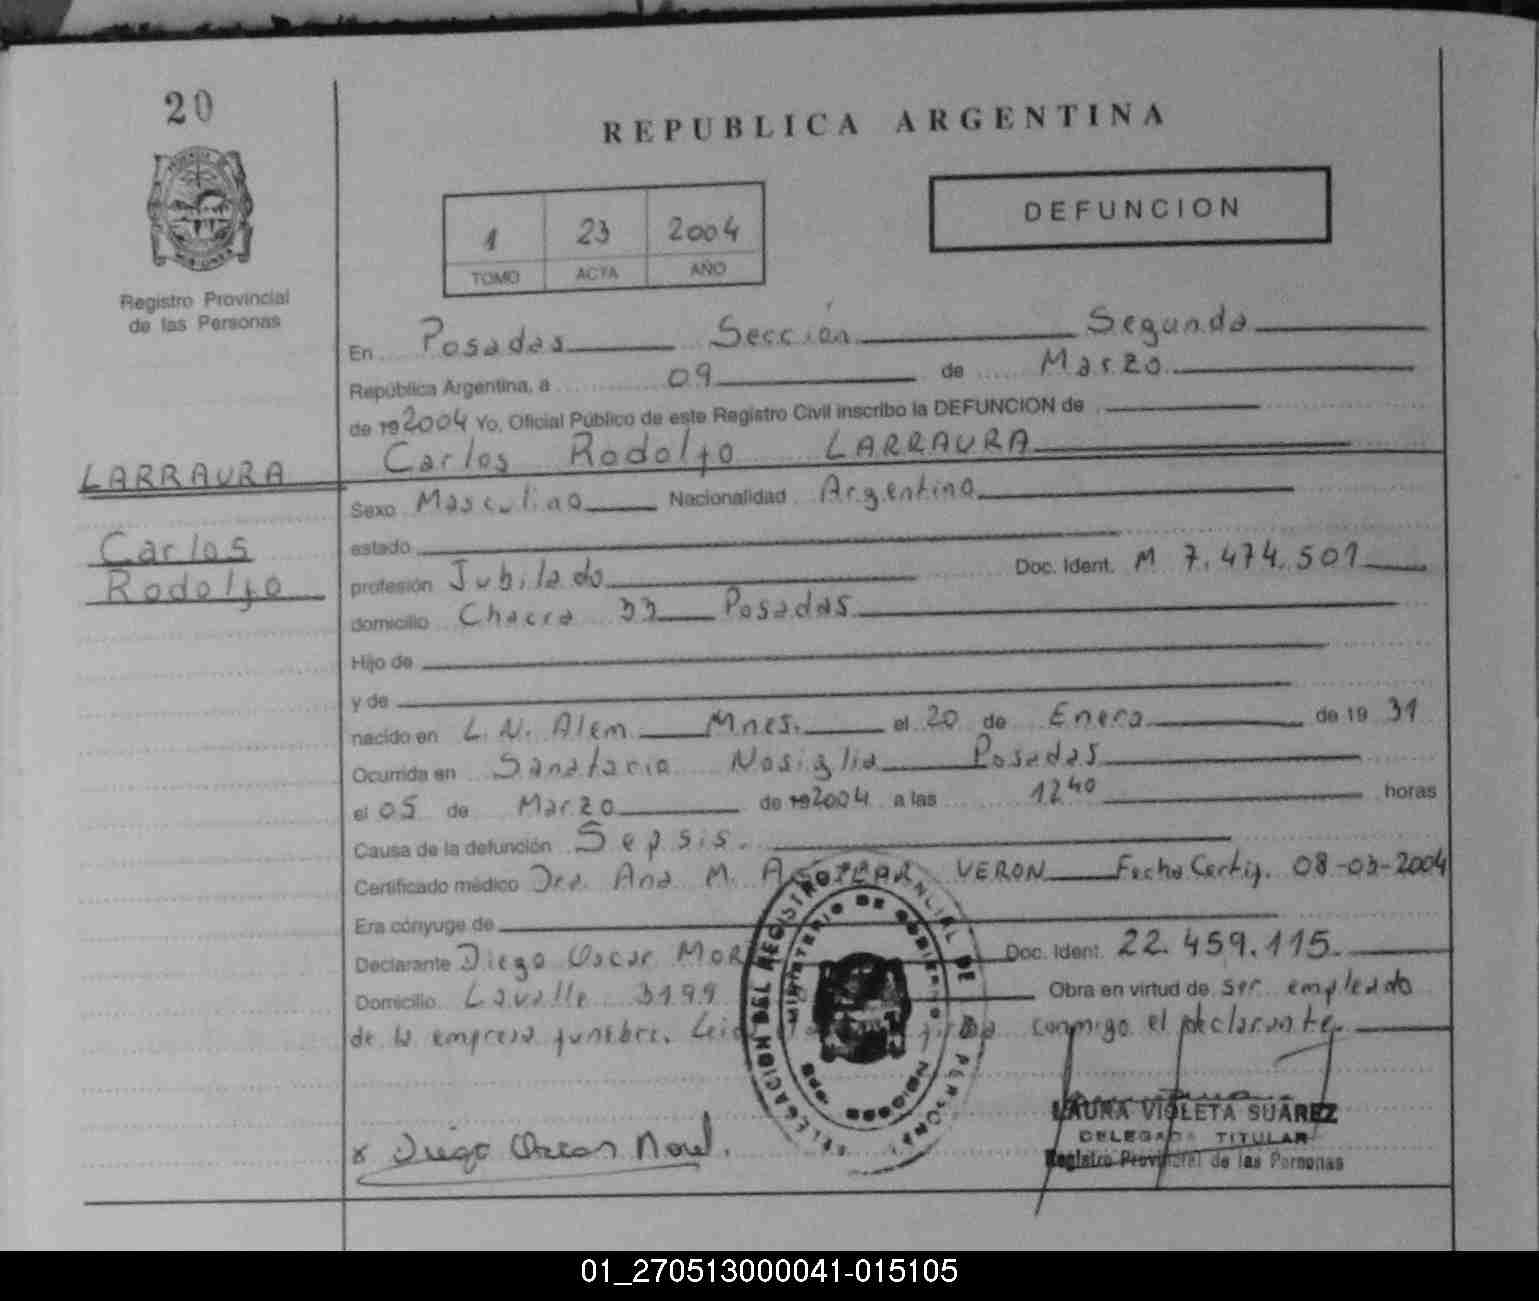 20
REPUBLICA ARGENTINA
1 23 2004
TOMO ACTA AÑO
DEFUNCION
Registro Provincial
de las Personas
En Posadas Sección Segunda
República Argentina, a 09 de Marzo
de 192004 Yo, Oficial Público de este Registro Civil inscribo la DEFUNCION de
Carlos Rodolfo LARRAURA
LARRAURA
Carlos
Rodolfo
Sexo Masculino Nacionalidad Argentina
estado
profesión Jubilado Doc. Ident. M 7.474.501
domicilio Chacra 33 Posadas
Hijo de
y de
nacido en L. N. Alem Mnes. el 20 de Enero de 19 31
Ocurrida en Sanatorio Nosiglia Posadas
el 05 de Marzo de 192004 a las 12 40 horas
Causa de la defunción Sepsis.
Certificado médico Dra. Ana M. AGUILAR VERON Fecha Certif. 08-03-2004
Era cónyuge de
Declarante Diego Oscar MOR Doc. Ident. 22.459.115.
Domicilio Lavalle 3199 Obra en virtud de ser empleado
de la empresa funebre. Leida firma conmigo el declarante.
DELEGACION DEL REGISTRO PROVINCIAL DE PERSONAS
MINISTERIO DE GOBIERNO
x Diego Oscar Morel.
LAURA VIOLETA SUAREZ
DELEGADA TITULAR
Registro Provincial de las Personas
01_270513000041-015105